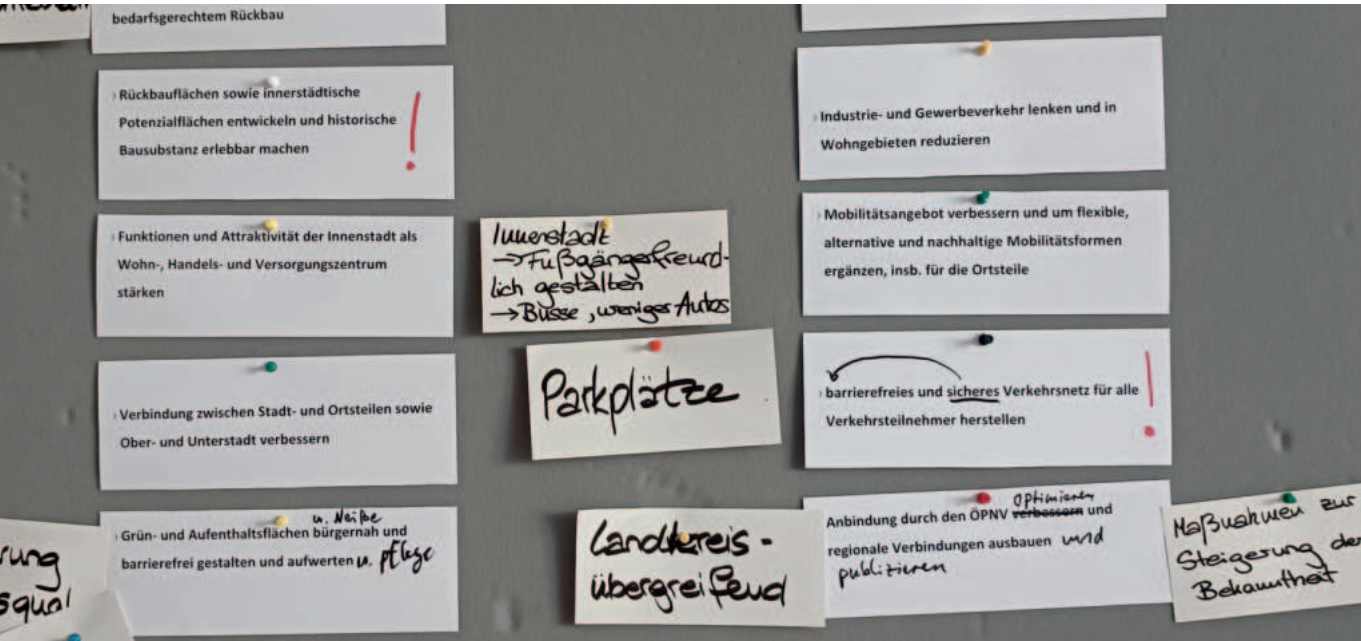 bedarfsgerechtem Rückbau
› Rückbauflächen sowie innerstädtische
Potenzialflächen entwickeln und historische
Bausubstanz erlebbar machen
!
› Funktionen und Attraktivität der Innenstadt als
Wohn-, Handels- und Versorgungszentrum
stärken
› Verbindung zwischen Stadt- und Ortsteilen sowie
Ober- und Unterstadt verbessern
u. Neiße
› Grün- und Aufenthaltsflächen bürgernah und
barrierefrei gestalten und aufwerten u. pflege
rung
squal
Innenstadt
→ Fußgängerfreund-
lich gestalten
→ Busse, weniger Autos
Parkplätze
Landkreis-
übergreifend
› Industrie- und Gewerbeverkehr lenken und in
Wohngebieten reduzieren
› Mobilitätsangebot verbessern und um flexible,
alternative und nachhaltige Mobilitätsformen
ergänzen, insb. für die Ortsteile
› barrierefreies und sicheres Verkehrsnetz für alle
Verkehrsteilnehmer herstellen
!
optimieren
Anbindung durch den ÖPNV verbessern und
regionale Verbindungen ausbauen und
publizieren
Maßnahmen zur
Steigerung der
Bekanntheit